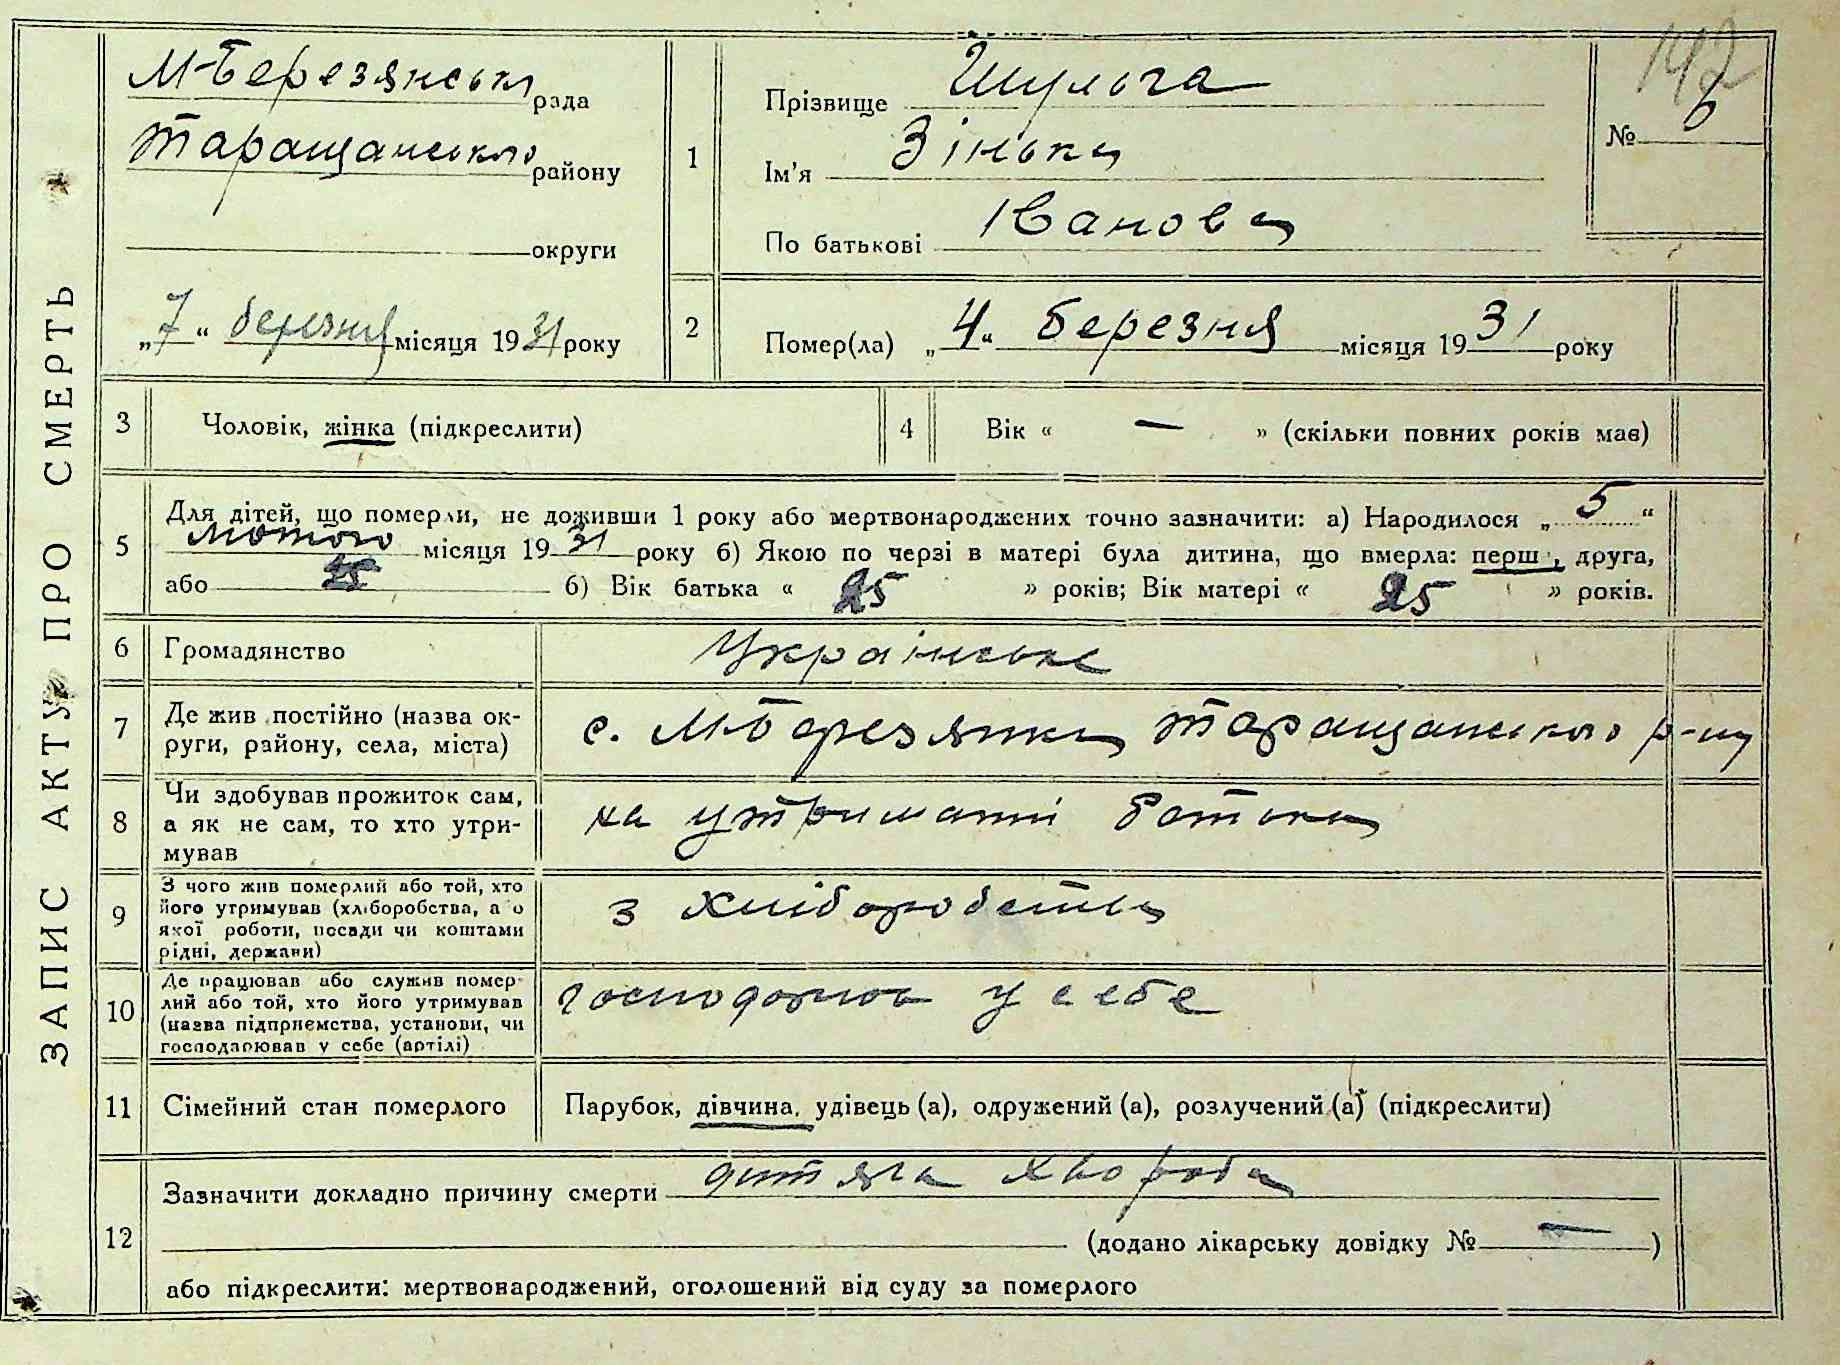 ЗАПИС АКТУ ПРО СМЕРТЬ
142
М-Березянська рада
Таращанського району
округи
„7“ березня місяця 1931 року
1
Прізвище Шульга
Ім'я Зінька
По батькові Іванова
№ 6
2
Помер(ла) „4“ березня місяця 1931 року
3
Чоловік, жінка (підкреслити)
4
Вік « — » (скільки повних років має)
5
Для дітей, що померли, не доживши 1 року або мертвонароджених точно зазначити: а) Народилося „5“
лютого місяця 1931 року б) Якою по черзі в матері була дитина, що вмерла: перш, друга,
або 25 б) Вік батька « 25 » років; Вік матері « 25 » років.
6
Громадянство
Українське
7
Де жив постійно (назва ок-
руги, району, села, міста)
с. М-Березянка Таращанського р-ну
8
Чи здобував прожиток сам,
а як не сам, то хто утри-
мував
на утриманні батька
9
З чого жив померлий або той, хто
його утримував (хліборобства, а о
якої роботи, посади чи коштами
рідні, держави)
з хліборобства
10
Де працював або служив помер-
лий або той, хто його утримував
(назва підприємства, установи, чи
господарював у себе (артілі)
господарює у себе
11
Сімейний стан померлого
Парубок, дівчина, удівець (а), одружений (а), розлучений (а) (підкреслити)
12
Зазначити докладно причину смерти дитяча хвороба
(додано лікарську довідку № — )
або підкреслити: мертвонароджений, оголошений від суду за померлого